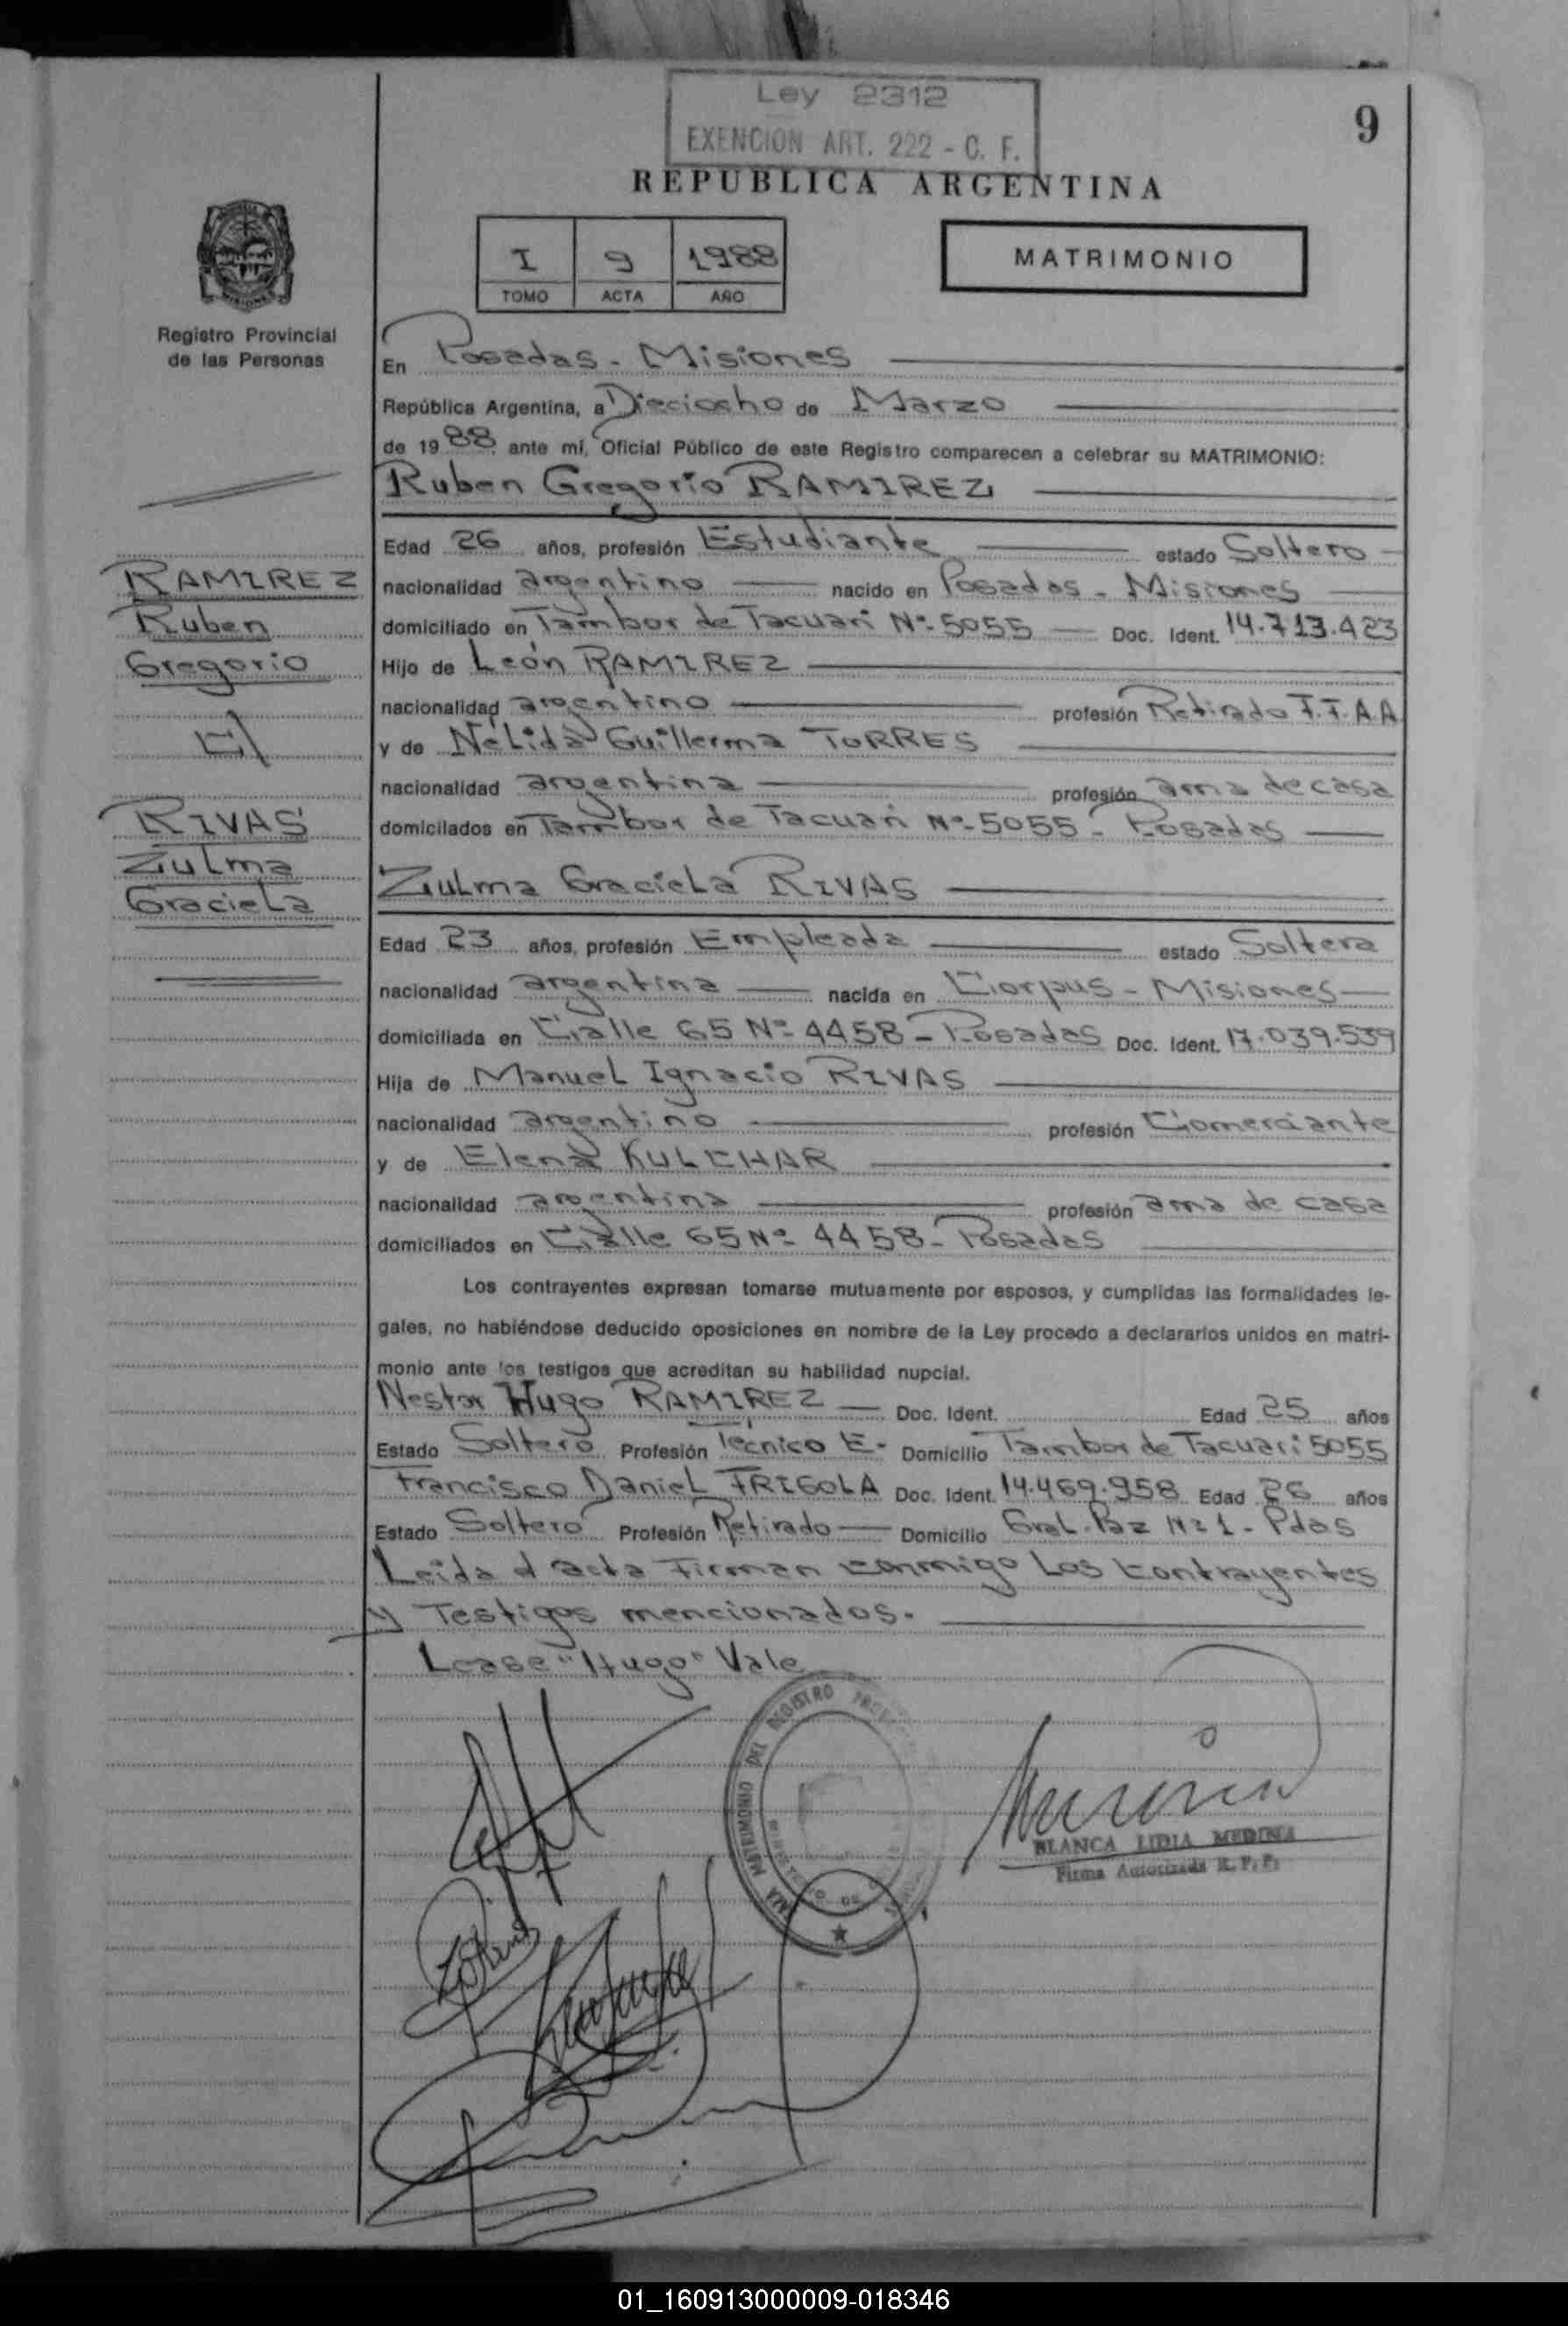 Ley 2312
EXENCION ART. 222 - C. F.
9
REPUBLICA ARGENTINA
I 9 1988
TOMO ACTA AÑO
MATRIMONIO
Registro Provincial
de las Personas
En Posadas - Misiones
República Argentina, a Dieciocho de Marzo
de 1988 ante mí, Oficial Público de este Registro comparecen a celebrar su MATRIMONIO:
Ruben Gregorio RAMIREZ
Edad 26 años, profesión Estudiante estado Soltero
nacionalidad argentino nacido en Posadas - Misiones
domiciliado en Tambor de Tacuari Nº 5055 Doc. Ident. 14.713.423
Hijo de León RAMIREZ
nacionalidad argentino profesión Retirado F.F.A.A
y de Nélida Guillerma TORRES
nacionalidad argentina profesión ama de casa
domicilados en Tambor de Tacuari Nº 5055 - Posadas
RAMIREZ
Ruben
Gregorio
y
RIVAS
Zulma
Graciela
Zulma Graciela RIVAS
Edad 23 años, profesión Empleada estado Soltera
nacionalidad argentina nacida en Corpus - Misiones
domiciliada en Calle 65 Nº 4458 - Posadas Doc. Ident. 17.039.539
Hija de Manuel Ignacio RIVAS
nacionalidad argentino profesión Comerciante
y de Elena KULCHAR
nacionalidad argentina profesión ama de casa
domiciliados en Calle 65 Nº 4458 - Posadas
Los contrayentes expresan tomarse mutuamente por esposos, y cumplidas las formalidades le-
gales, no habiéndose deducido oposiciones en nombre de la Ley procedo a declararlos unidos en matri-
monio ante los testigos que acreditan su habilidad nupcial.
Nestor Hugo RAMIREZ Doc. Ident. Edad 25 años
Estado Soltero Profesión Técnico E. Domicilio Tambor de Tacuari 5055
Francisco Daniel FRIGOLA Doc. Ident. 14.469.958 Edad 26 años
Estado Soltero Profesión Retirado Domicilio Gral. Paz Nº 1 - Pdas
Leida el acta Firman conmigo los contrayentes
y Testigos mencionados.
Lease "Hugo" Vale
MATRIMONIO DEL REGISTRO
BLANCA LIDIA MEDINA
Firma Autorizada R. P. P.
01_160913000009-018346